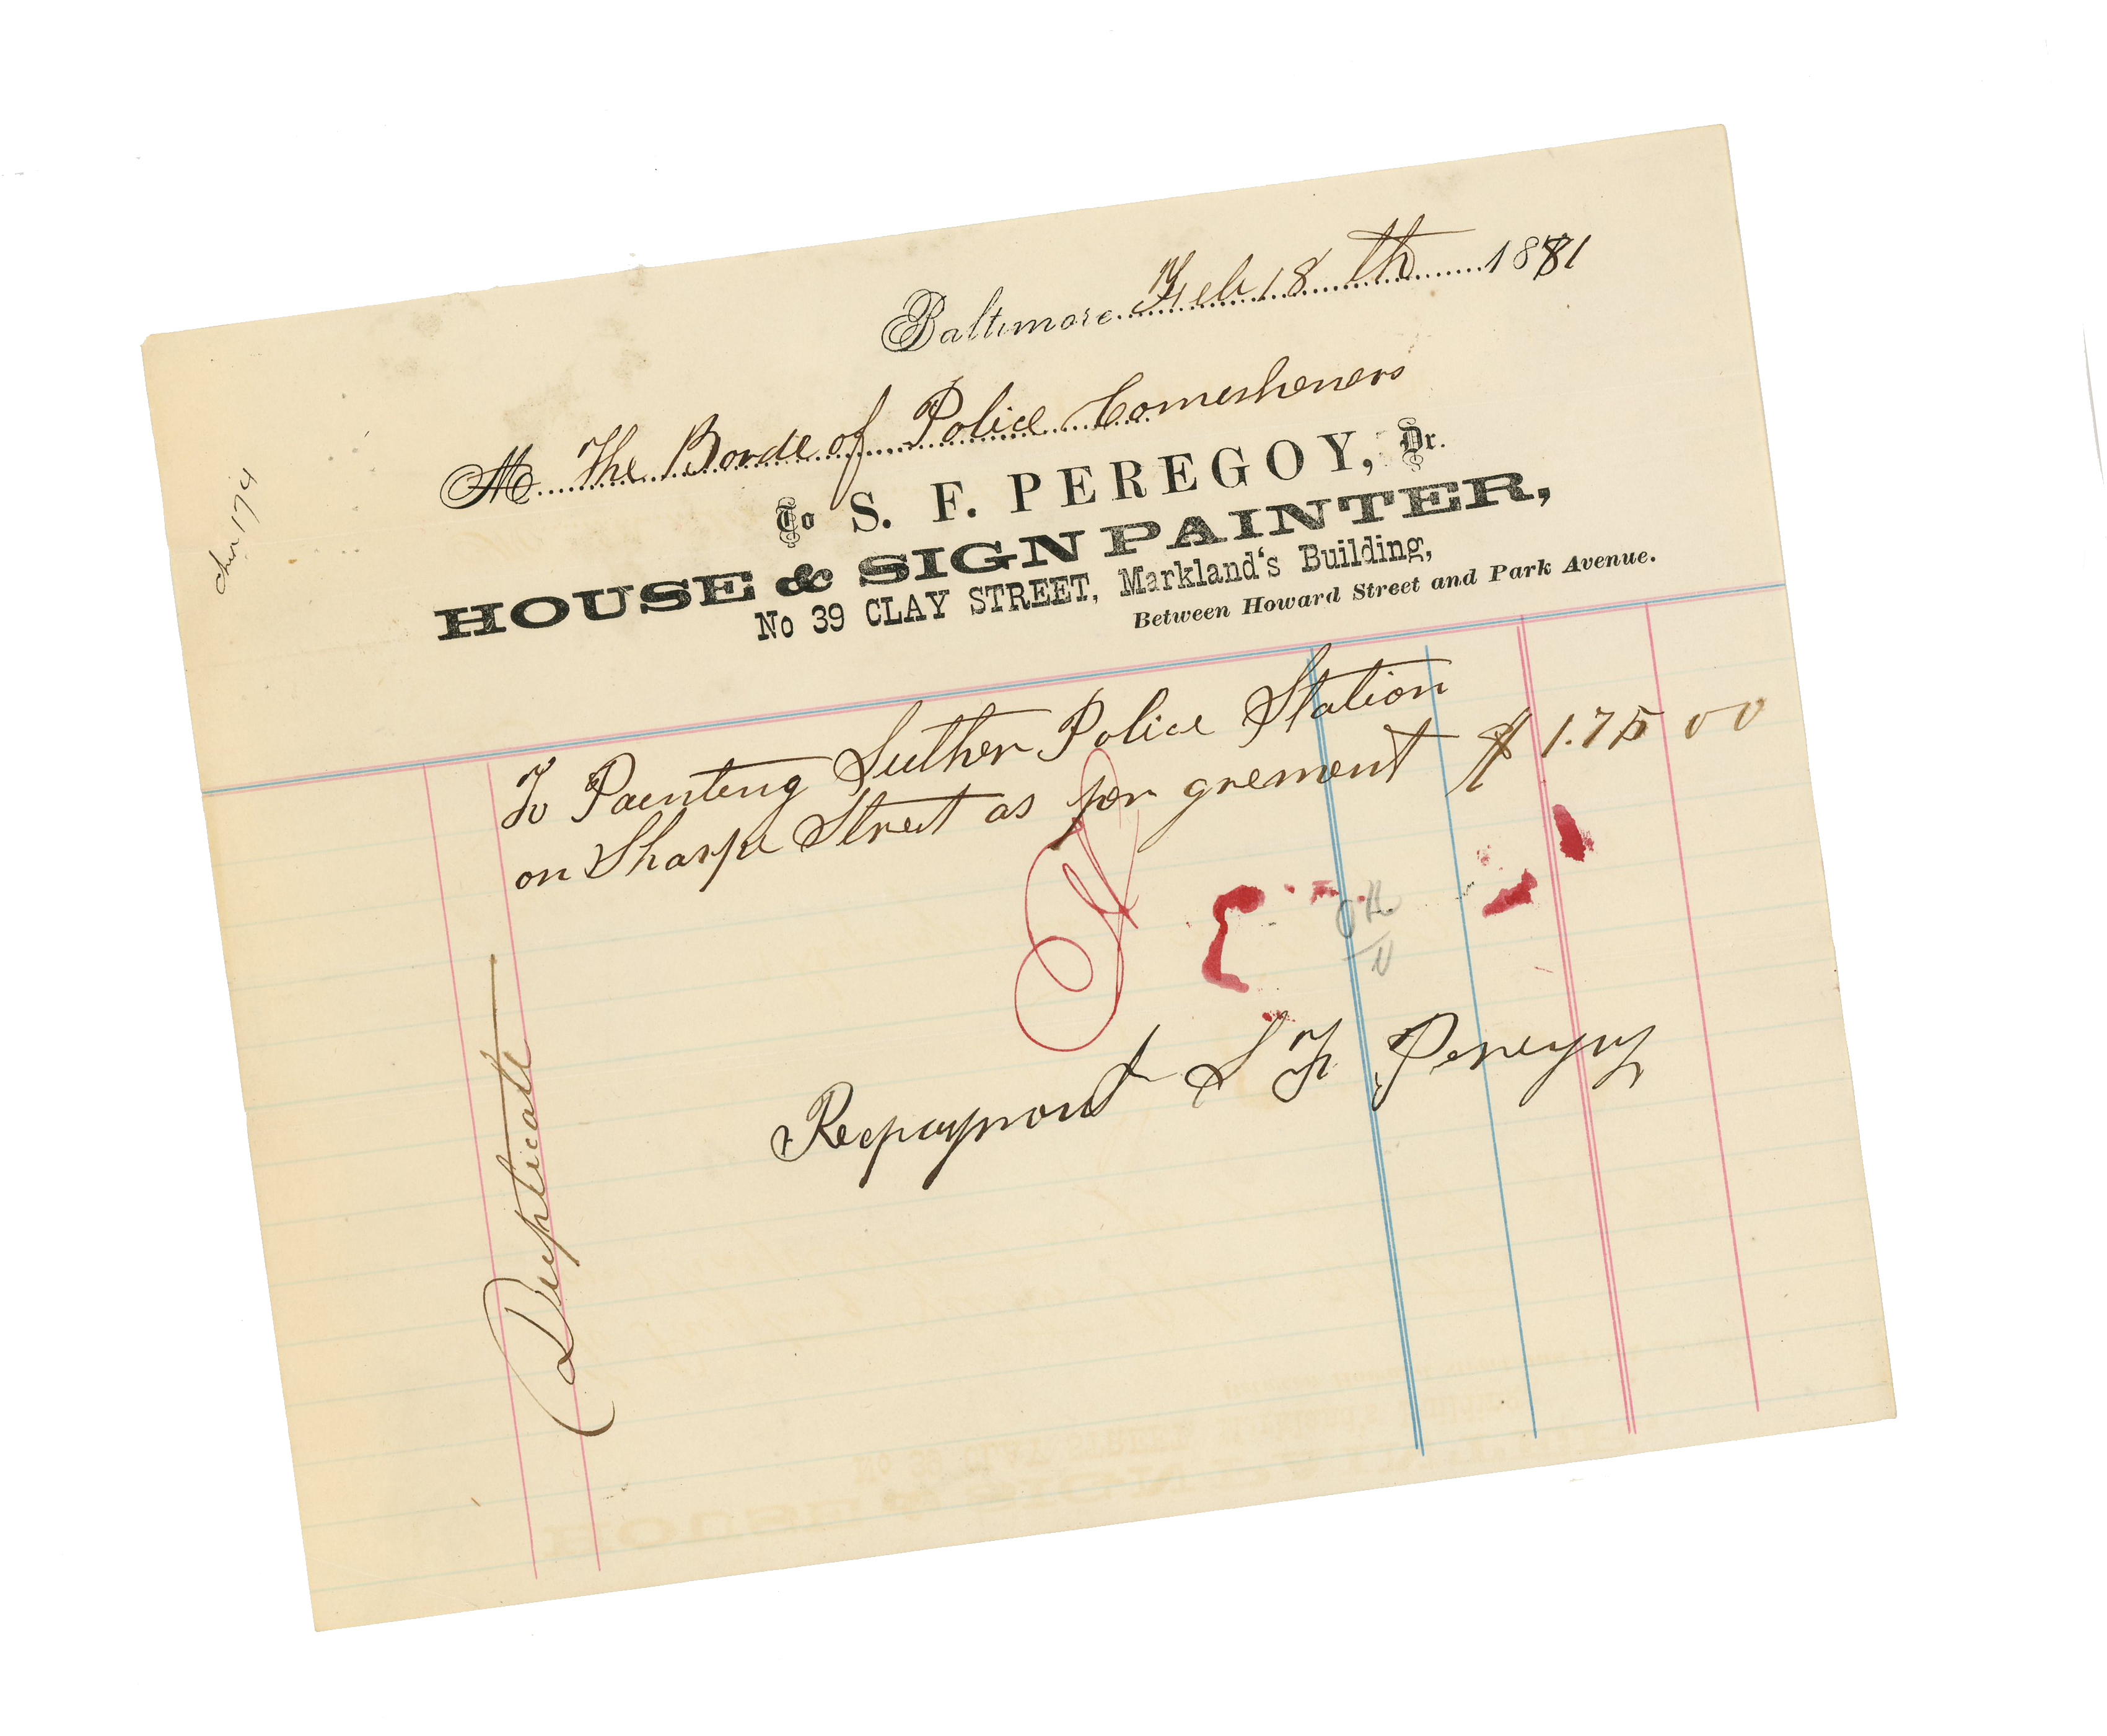 Baltimore Feb 18 th 1881
M The Borde of Police Comesheners
To S. F. PEREGOY, Dr.
HOUSE & SIGN PAINTER,
No 39 CLAY STREET, Markland's Building,
Between Howard Street and Park Avenue.
To Painting Suthern Police Station
on Sharpe Street as per grement $ 1.75 00
OK
Recpayment S F Peregoy
Duplicate
174